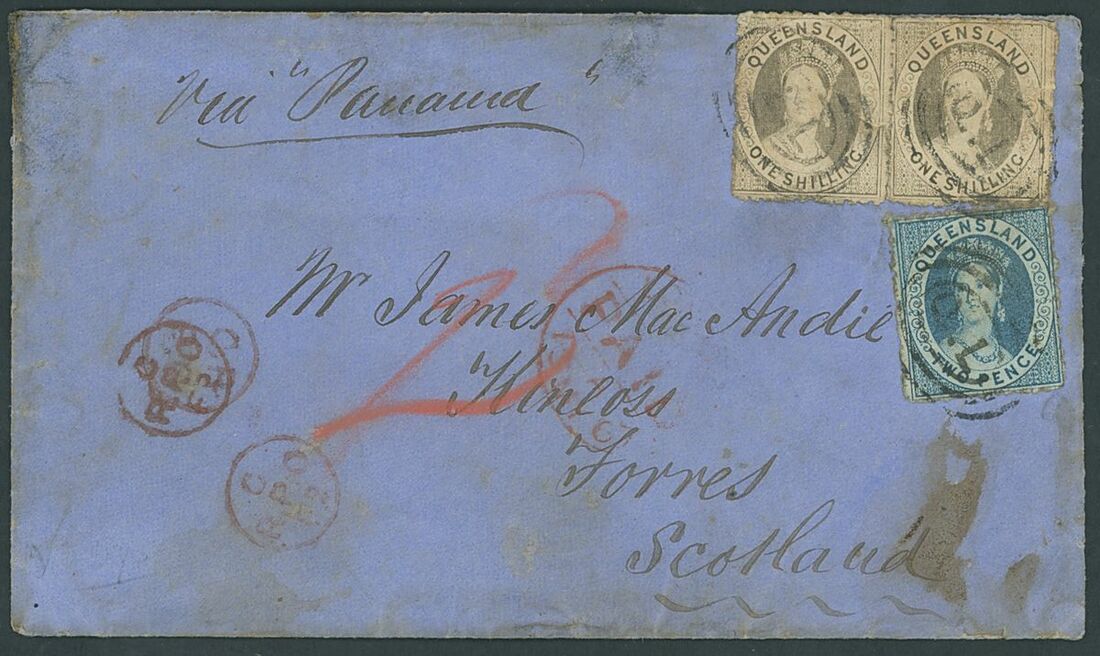 Via "Panama"
QUEENSLAND
ONE SHILLING
QUEENSLAND
ONE SHILLING
QUEENSLAND
TWO PENCE
Mr James Mac Andie
Kinloss
Forres
Scotland